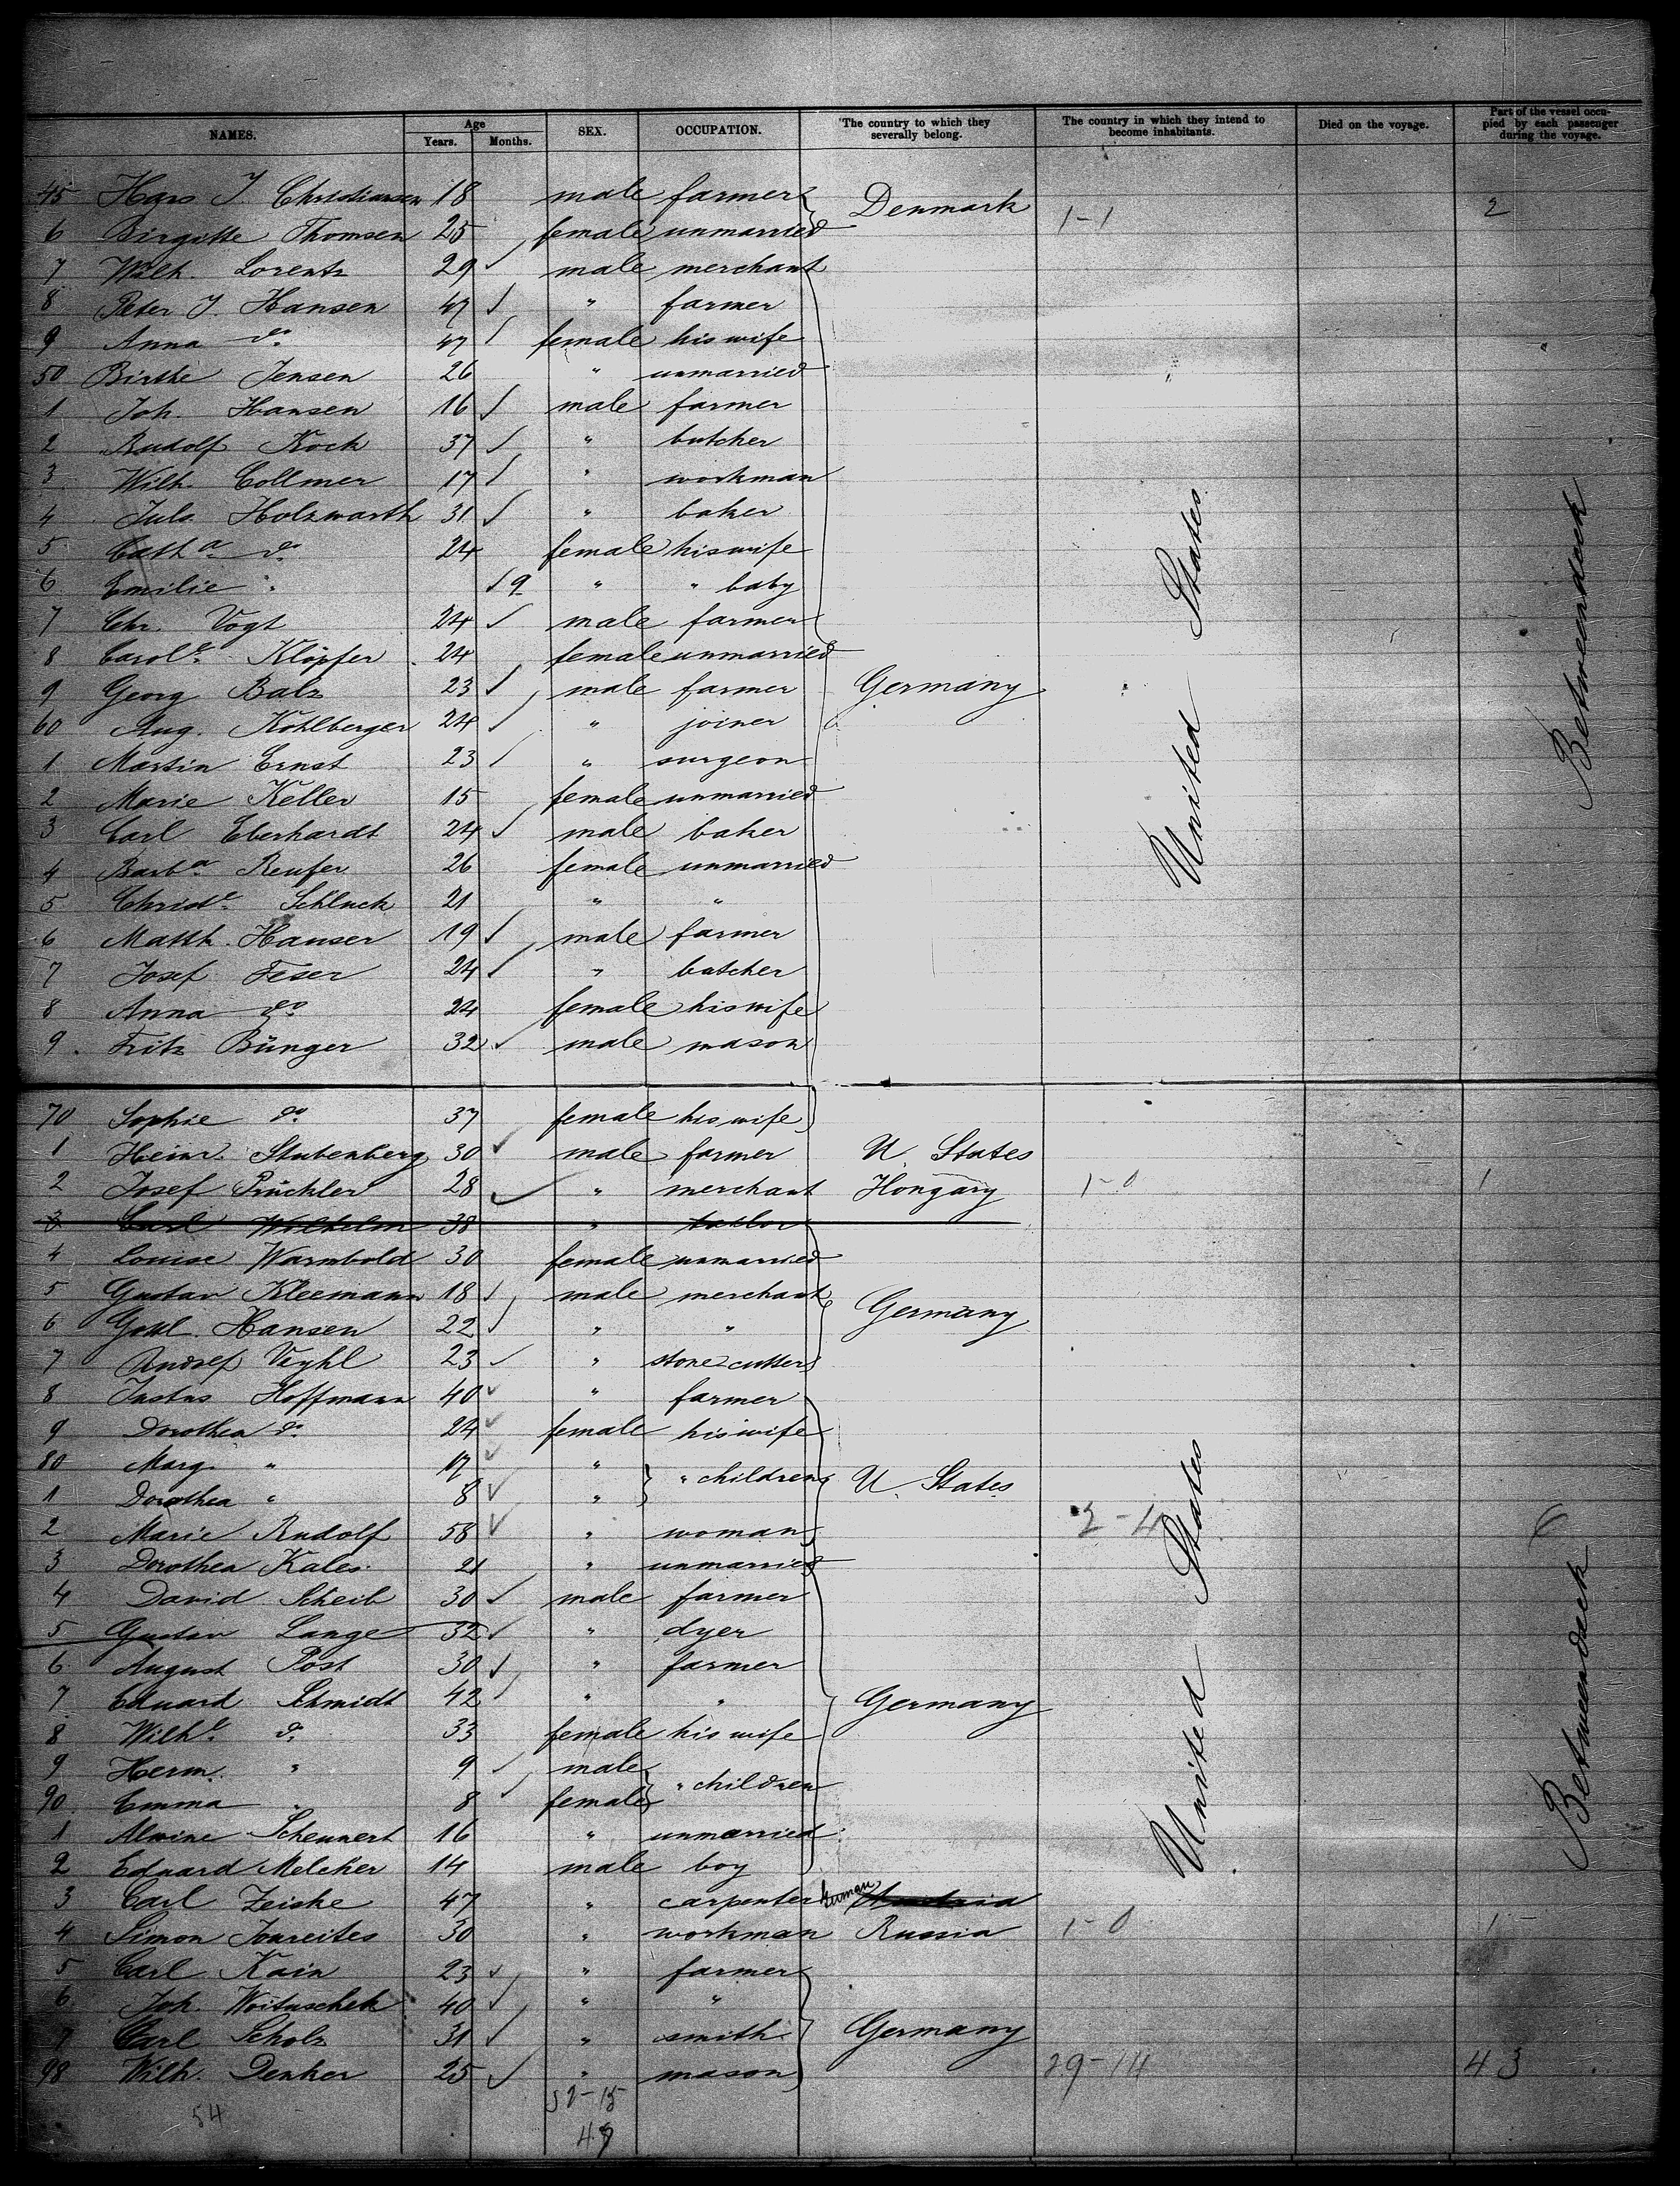 NAMES. Age Years. Months. SEX. OCCUPATION. The country to which they severally belong. The country in which they intend to become inhabitants. Died on the voyage. Part of the vessel occupied by each passenger during the voyage.
45 Hans J. Christiansen 18 male farmer Denmark 1-1 2
6 Birgitte Thomsen 25 female unmarried
7 Wilh. Lorentz 29 male merchant
8 Peter J. Hansen 47 " farmer
9 Anna do 47 female his wife
50 Birthe Jensen 26 " unmarried
1 Joh. Hansen 16 male farmer
2 Rudolf Koch 37 " butcher
3 Wilh. Collmer 17 " workman
4 Juls. Holzwarth 31 " baker
5 Catha do 24 female his wife
6 Emilie " 9 " " baby
7 Chr. Vogt 24 male farmer
8 Carole Klöpfer 24 female unmarried
9 Georg Balz 23 male farmer Germany United States Betweendeck
60 Aug. Kohlberger 24 " joiner
1 Martin Ernst 23 " surgeon
2 Marie Keller 15 female unmarried
3 Carl Eberhardt 24 male baker
4 Barba Reufer 26 female unmarried
5 Christe Schluck 21 " "
6 Matth. Hauser 19 male farmer
7 Josef Feser 24 " butcher
8 Anna do 24 female his wife
9 Fritz Bünger 32 male mason
70 Sophie do 37 female his wife
1 Heinr. Stubenberg 30 male farmer U. States
2 Josef Prückler 28 " merchant Hongary 1-0 1
3 Carl Wilhelm 38 " tailor
4 Louise Warmbold 30 female unmarried
5 Gustav Kleemann 18 male merchant Germany
6 Gottl. Hansen 22 " "
7 Veyhl 23 " stone cutter
8 Justus Hoffmann 40 " farmer
9 Dorothea do 24 female his wife
80 Marg. " 17 " " children U. States
1 Dorothea " 8 "
2 Marie Rudolf 58 " woman 2-4 6
3 Dorothea Kales 21 " unmarried
4 David Scheib 30 male farmer
5 Gustav Lange 32 " dyer
6 August Post 30 " farmer
7 Eduard Schmidt 42 " " Germany United States Betweendeck
8 Wilhe do 33 female his wife
9 Herm. " 9 male " children
90 Emma " 8 female
1 Alwine Scheunert 16 " unmarried
2 Eduard Melcher 14 male boy
3 Carl Zeiske 47 " carpenter German Austria
4 Simon Joureites 30 " workman Russia 1-0 1
5 Carl Kain 23 " farmer
6 Joh. Woituschek 40 " "
7 Carl Scholz 31 " smith Germany
98 Wilh. Denker 25 " mason 29-14 43
54 52-15
49